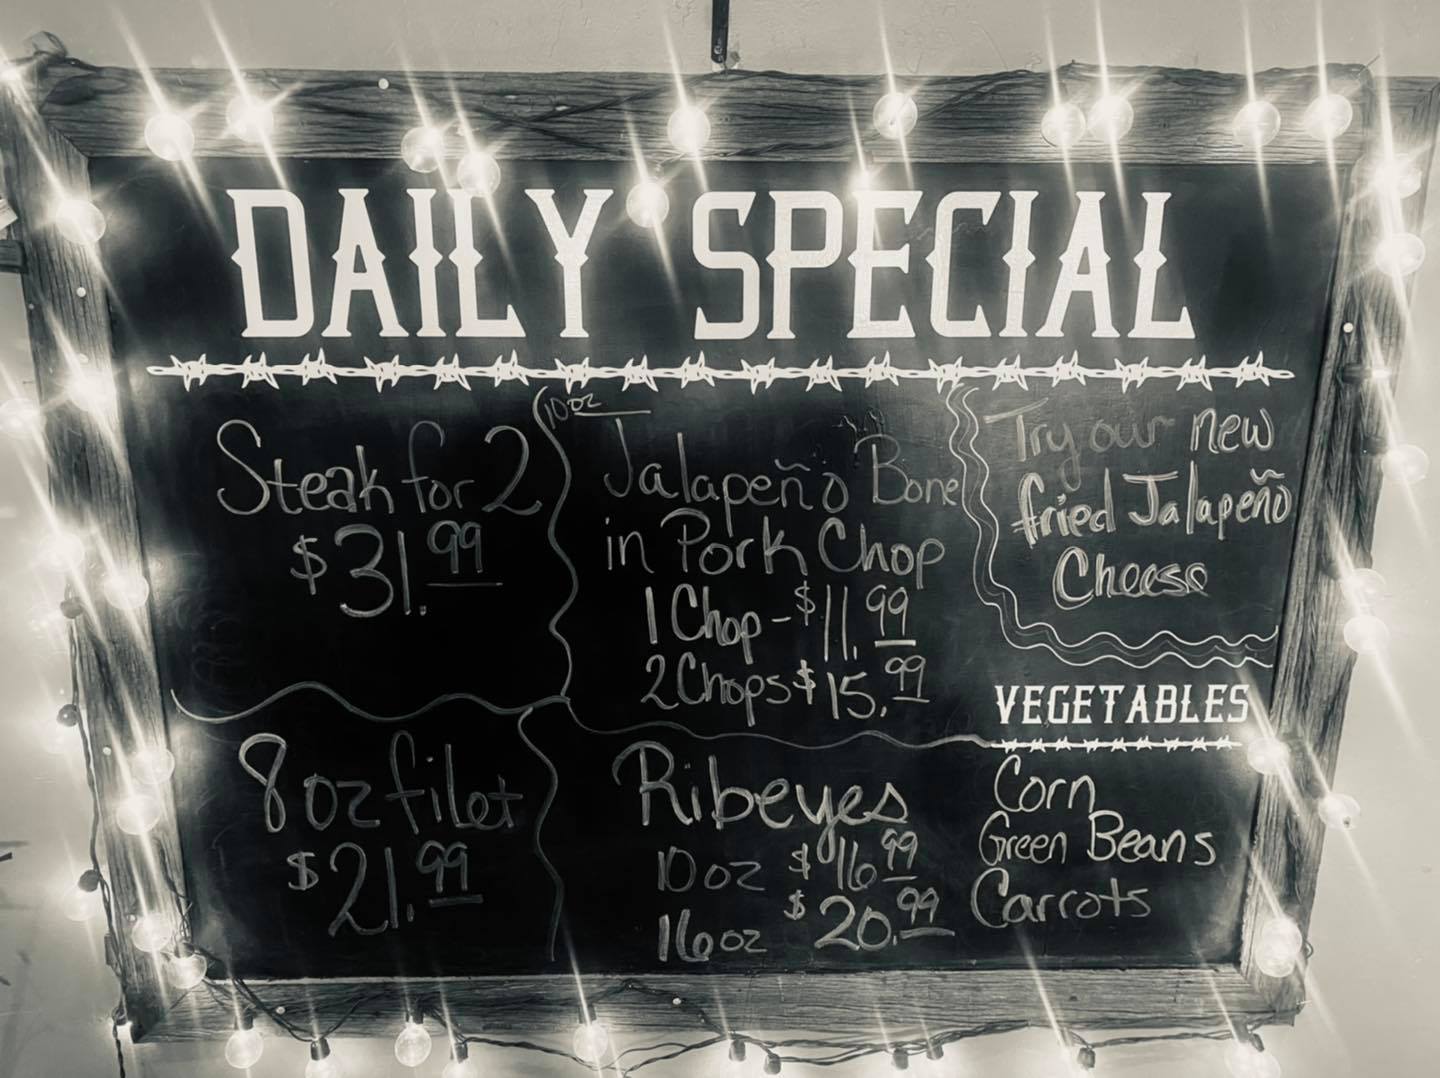 DAILY SPECIAL
Steak for 2
$31.99
10oz
Jalapeño Bone
in Pork Chop
1 Chop - $11.99
2 Chops $15.99
Try our new
fried Jalapeño
Cheese
8oz filet
$21.99
Ribeyes
10 oz $16.99
16oz $20.99
VEGETABLES
Corn
Green Beans
Carrots